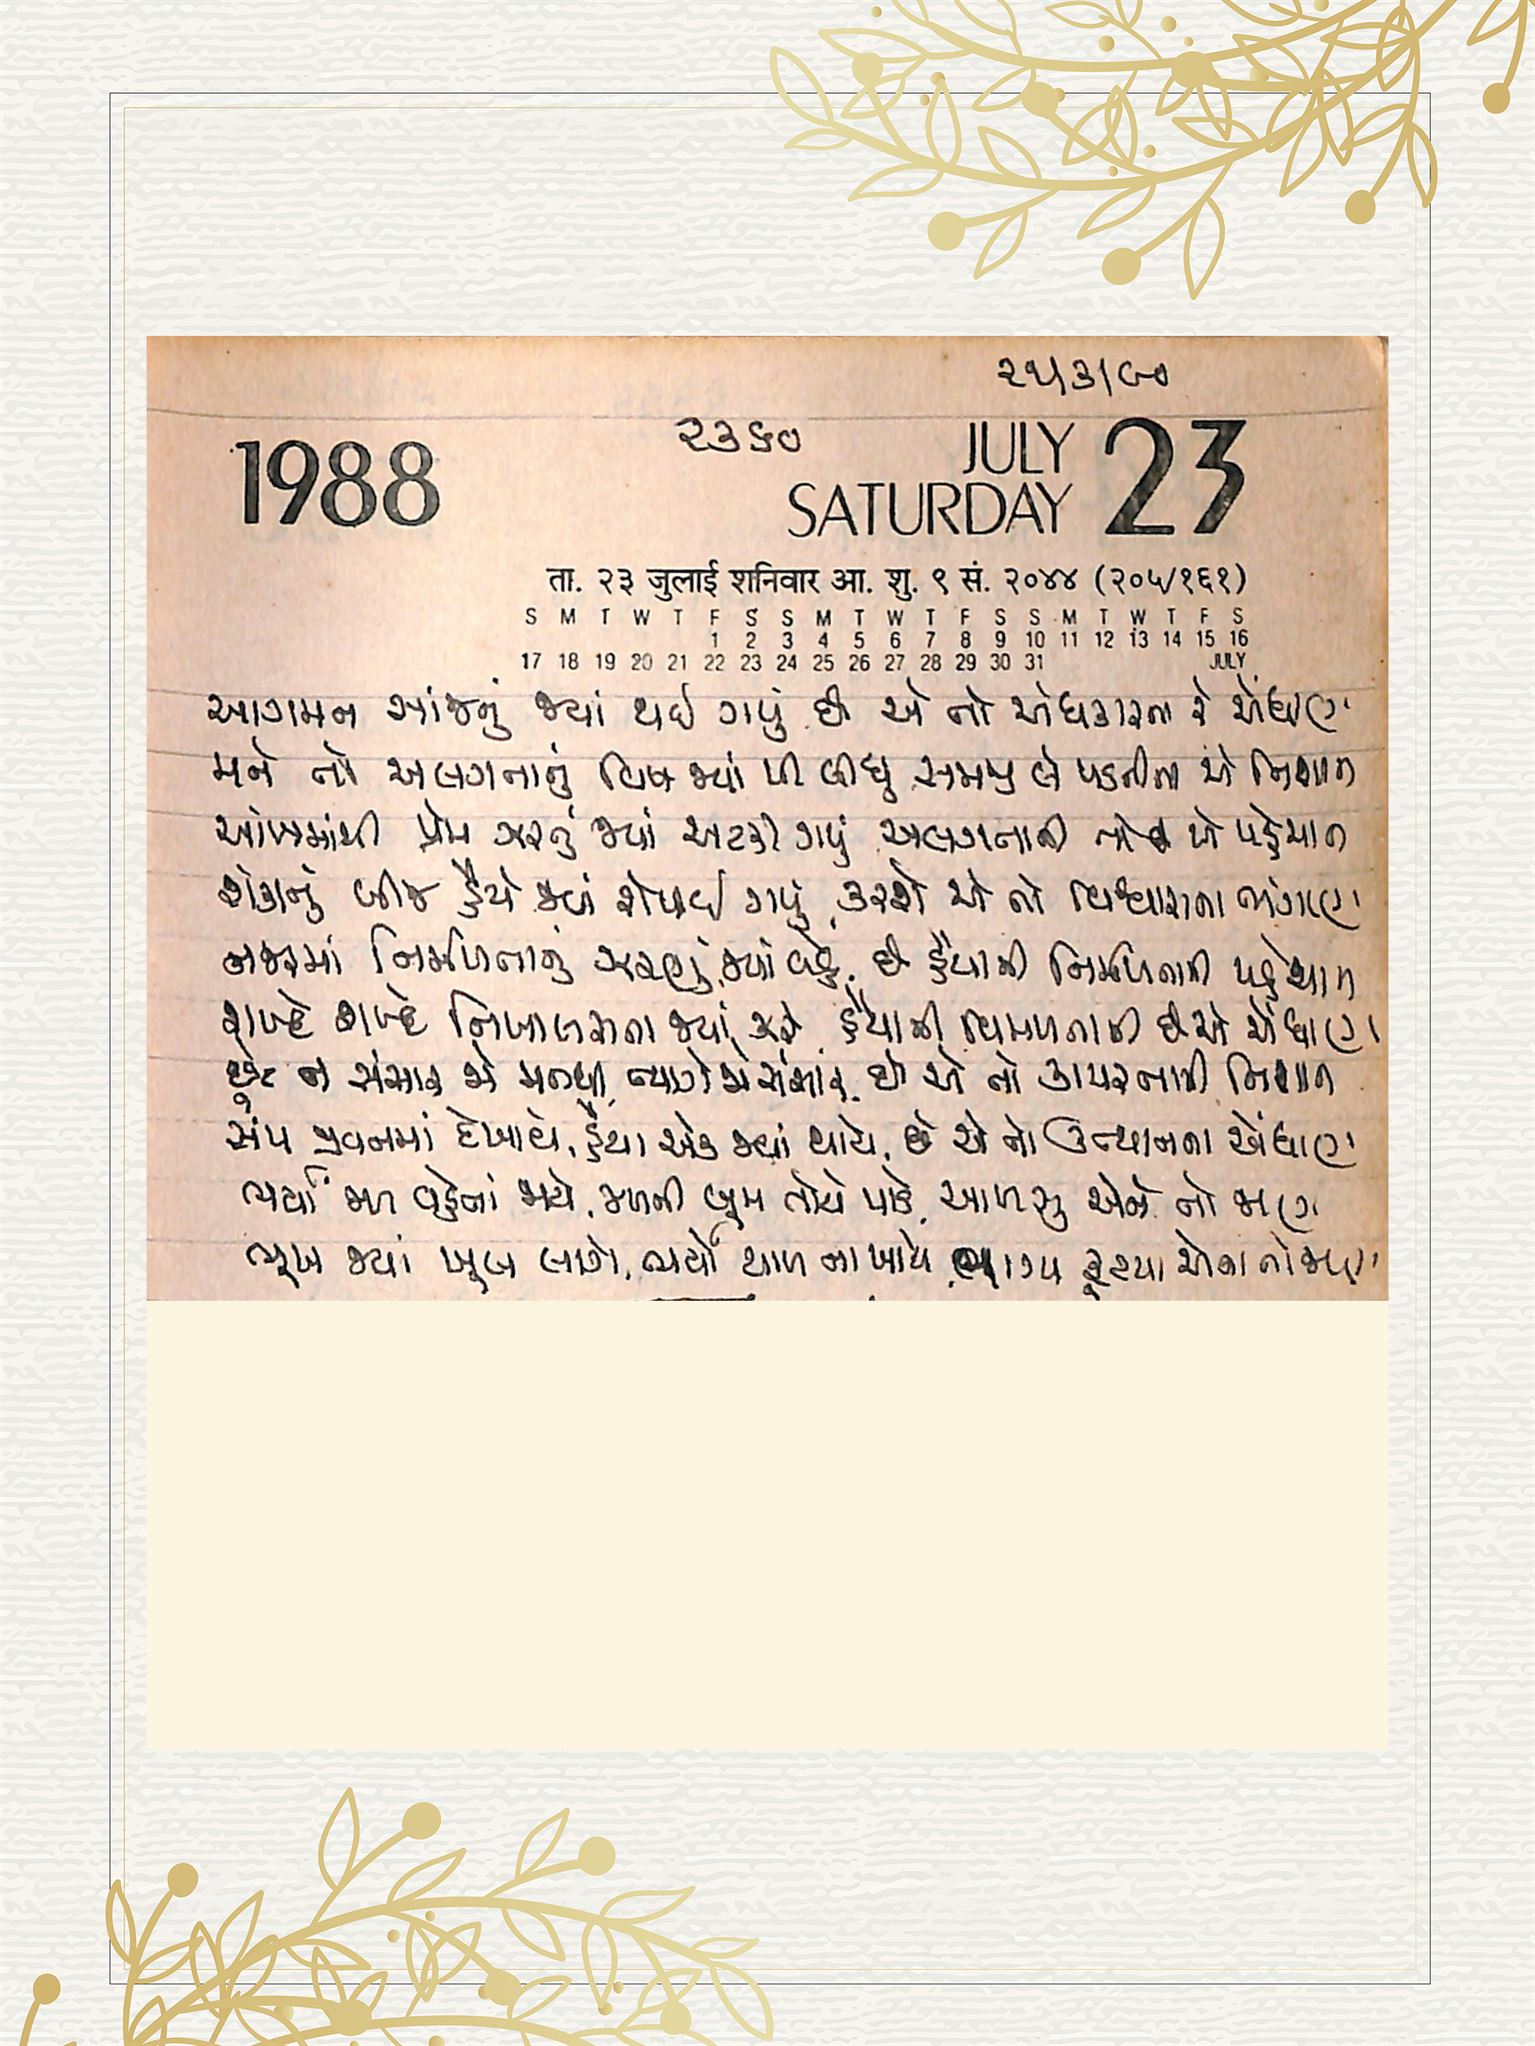 ૨૫/૩/૯૦
૨૩૬૦
1988
JULY
SATURDAY 23
ता. २३ जुलाई शनिवार आ. शु. ९ सं. २०४४ (२०५/१६१)
S M T W T F S S M T W T F S S M T W T F S
1 2 3 4 5 6 7 8 9 10 11 12 13 14 15 16
17 18 19 20 21 22 23 24 25 26 27 28 29 30 31 JULY
આગમન સાંજનું જ્યાં થઈ ગયું છે એ તો અંધકારના રે એંધાણ
મને તો અલગતાનું વિષ જ્યાં પી લીધું સમજી લે પડતીના એ નિશાન
આંખમાંથી પ્રેમ ઝરતું જ્યાં અટકી ગયું અલગતાની તો એ પહેચાન
શંકાનું બીજ હૈયે જ્યાં રોપાઈ ગયું, કરશે એ તો વિશ્વાસના ભંગાણ
નજરમાં નિર્મળતાનું ઝરણું જ્યાં વહે, છે હૈયાની નિર્મળતાની પહેચાન
શબ્દે શબ્દે નિખાલસતા જ્યાં ઝરે, હૈયાની વિમળતાની છે એ એંધાણ
છૂટે ન સંસાર જે મનથી, ત્યાગે જે સંસાર, છે એ તો કાયરતાની નિશાન
સંપ જીવનમાં દેખાયે, હૈયા એક જ્યાં થાયે, છે એ તો ઉત્થાનના એંધાણ
ભર્યાં જળ વહેતાં જાયે, જળની બૂમ તોયે પાડે, આળસુ એને તો જાણ
ભૂખ જ્યાં ખૂબ લાગે, ભર્યો થાળ ના ખાયે, ભાગ્ય રૂઠ્યા એના તો જાણ